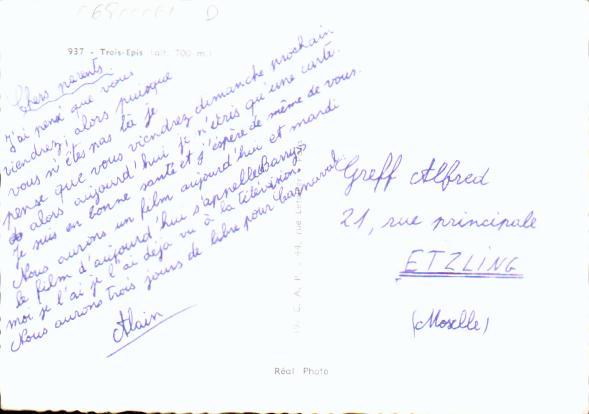 937 - Trois-Epis (alt. 700 m.)
Chers parents.
J'ai pensé que vous
viendrez, alors puisque
vous n'êtes pas là je
pense que vous viendrez dimanche prochain
alors aujourd'hui je n'écris qu'une carte.
Je suis en bonne santé et j'espère de même de vous.
Nous aurons un film aujourd'hui et mardi
le film d'aujourd'hui s'appelle Barry
moi je l'ai je l'ai déja vu à la télévision.
Nous aurons trois jours de libre pour Carnaval.
Alain
Greff Alfred
21, rue principale
ETZLING
(Moselle)
C. A. P. - 44, rue
Réal Photo